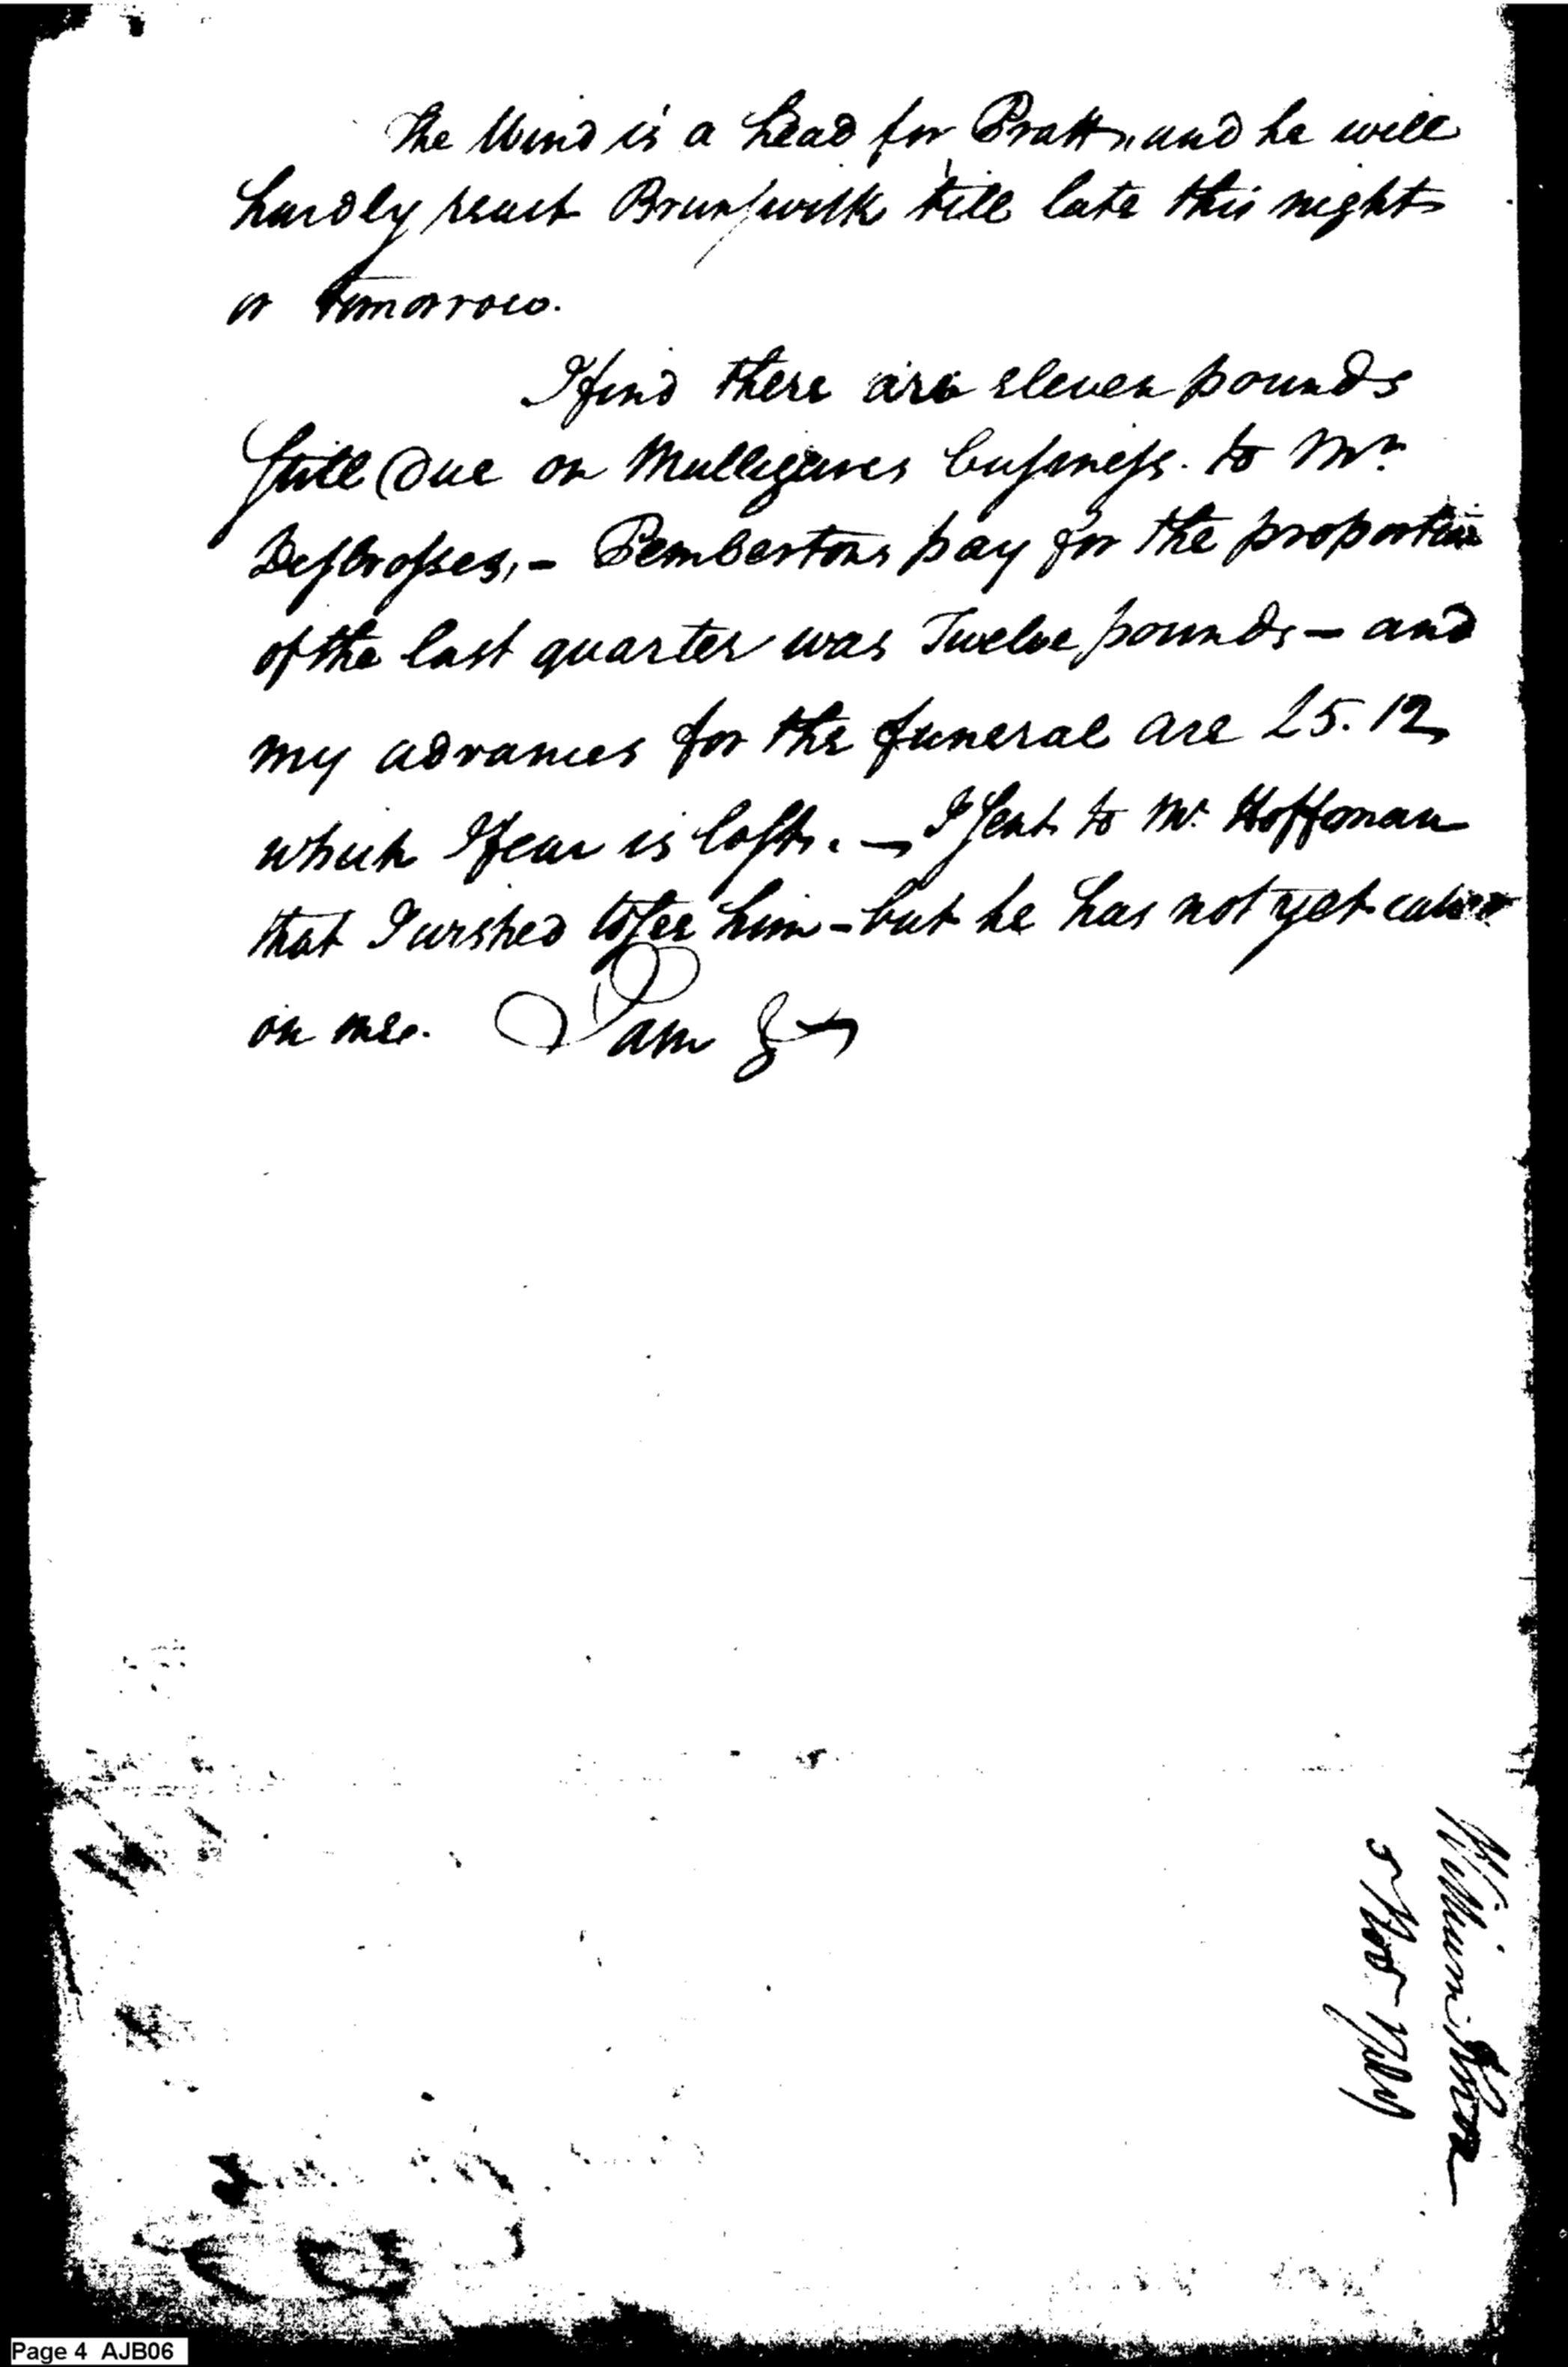 The Wind is a head for Pratt, and he will
hardly reach Brunswick till late this night
or tomorrow.
I find there are eleven pounds
still due on Mulligans business. to Mr.
Desbrosses, - Pembertons pay for the proportion
of the last quarter was Twelve pounds - and
my advances for the funeral are 25. 12
which I fear is lost. - I sent to Mr. Hoffman
that I wished to see him - but he has not yet called
on me. I am &
William
Page 4 AJB06